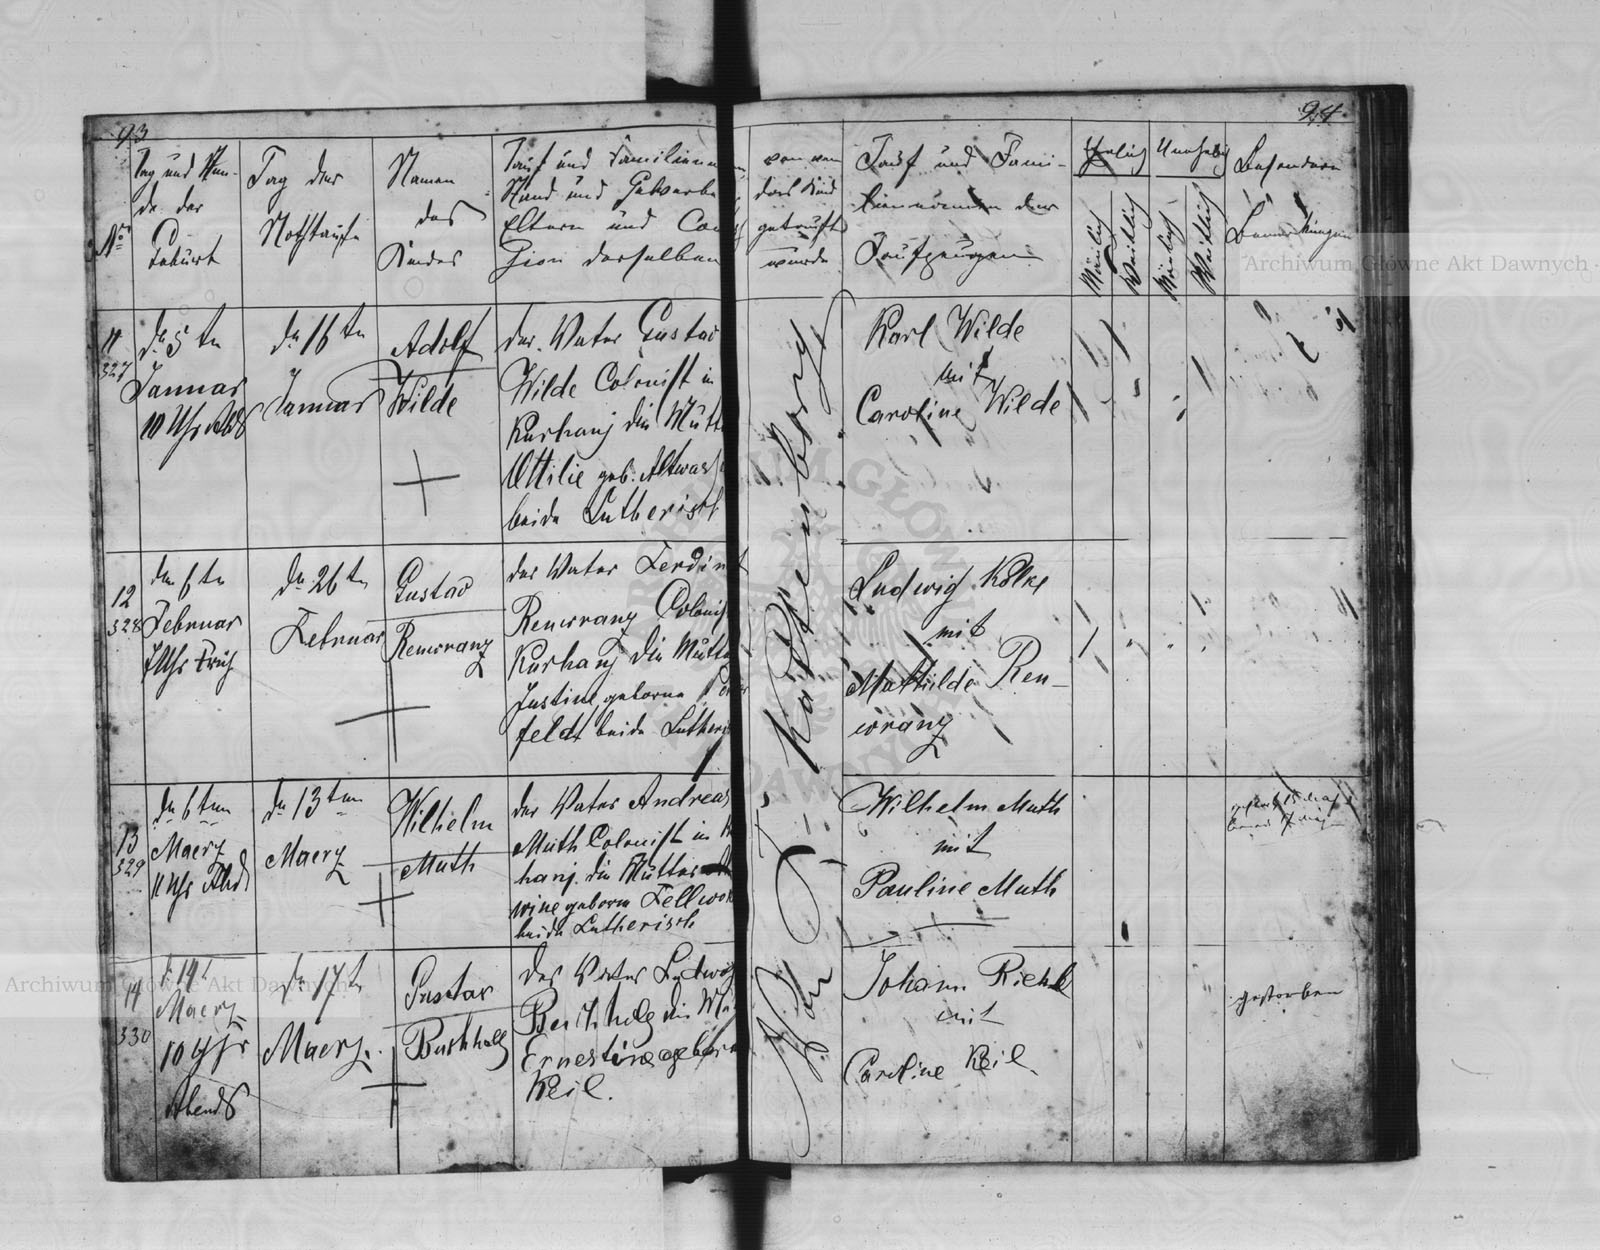 93
94
No
Tag und Stun-
de der
Geburt
Tag der
Nothtaufe
Namen
des
Kindes
Tauf und Familiennamen
Stand und Gewerbe
Eltern und
derselben
von wem
das Kind
getauft
wurde
Tauf und Fami-
liennamen der
Taufzeugen
Ehelich
Unehelich
Mänlich
Weiblich
Mänlich
Weiblich
Besondere
Bemerkungen
11
327
den 5ten
Januar
10 Uhr Abds
den 16ten
Januar
Adolf
Wilde
der Vater Gustav
Wilde Colonist in
die Mutter
Ottilie geb:
beide Lutherisch
Karl Wilde
mit
Caroline Wilde
12
328
den 6ten
Februar
7 Uhr Früh
den 26ten
Februar
Gustav
Renwranz
der Vater Ferdinand
Renwranz Colonist
die Mutter
Justine geborne
feldt beide Lutherisch
Ludwig Kölke
mit
Mathilde Ren-
wranz
13
329
den 6ten
Maerz
11 Uhr Abds
den 13ten
Maerz
Wilhelm
Muth
der Vater Andreas
Muth Colonist in
die Mutter
wine geborne
beide Lutherisch
Wilhelm Muth
mit
Pauline Muth
14
330
Maerz
10 Uhr
Abends
den 17ten
Maerz
Gustav
Buchholz
Der Vater Ludwig
Buchholz die
Ernestine geborne
Keil.
Johann Riehl
mit
Caroline Keil.
gestorben
Von
Kattenberg
Archiwum Główne Akt Dawnych
Archiwum Główne Akt Dawnych